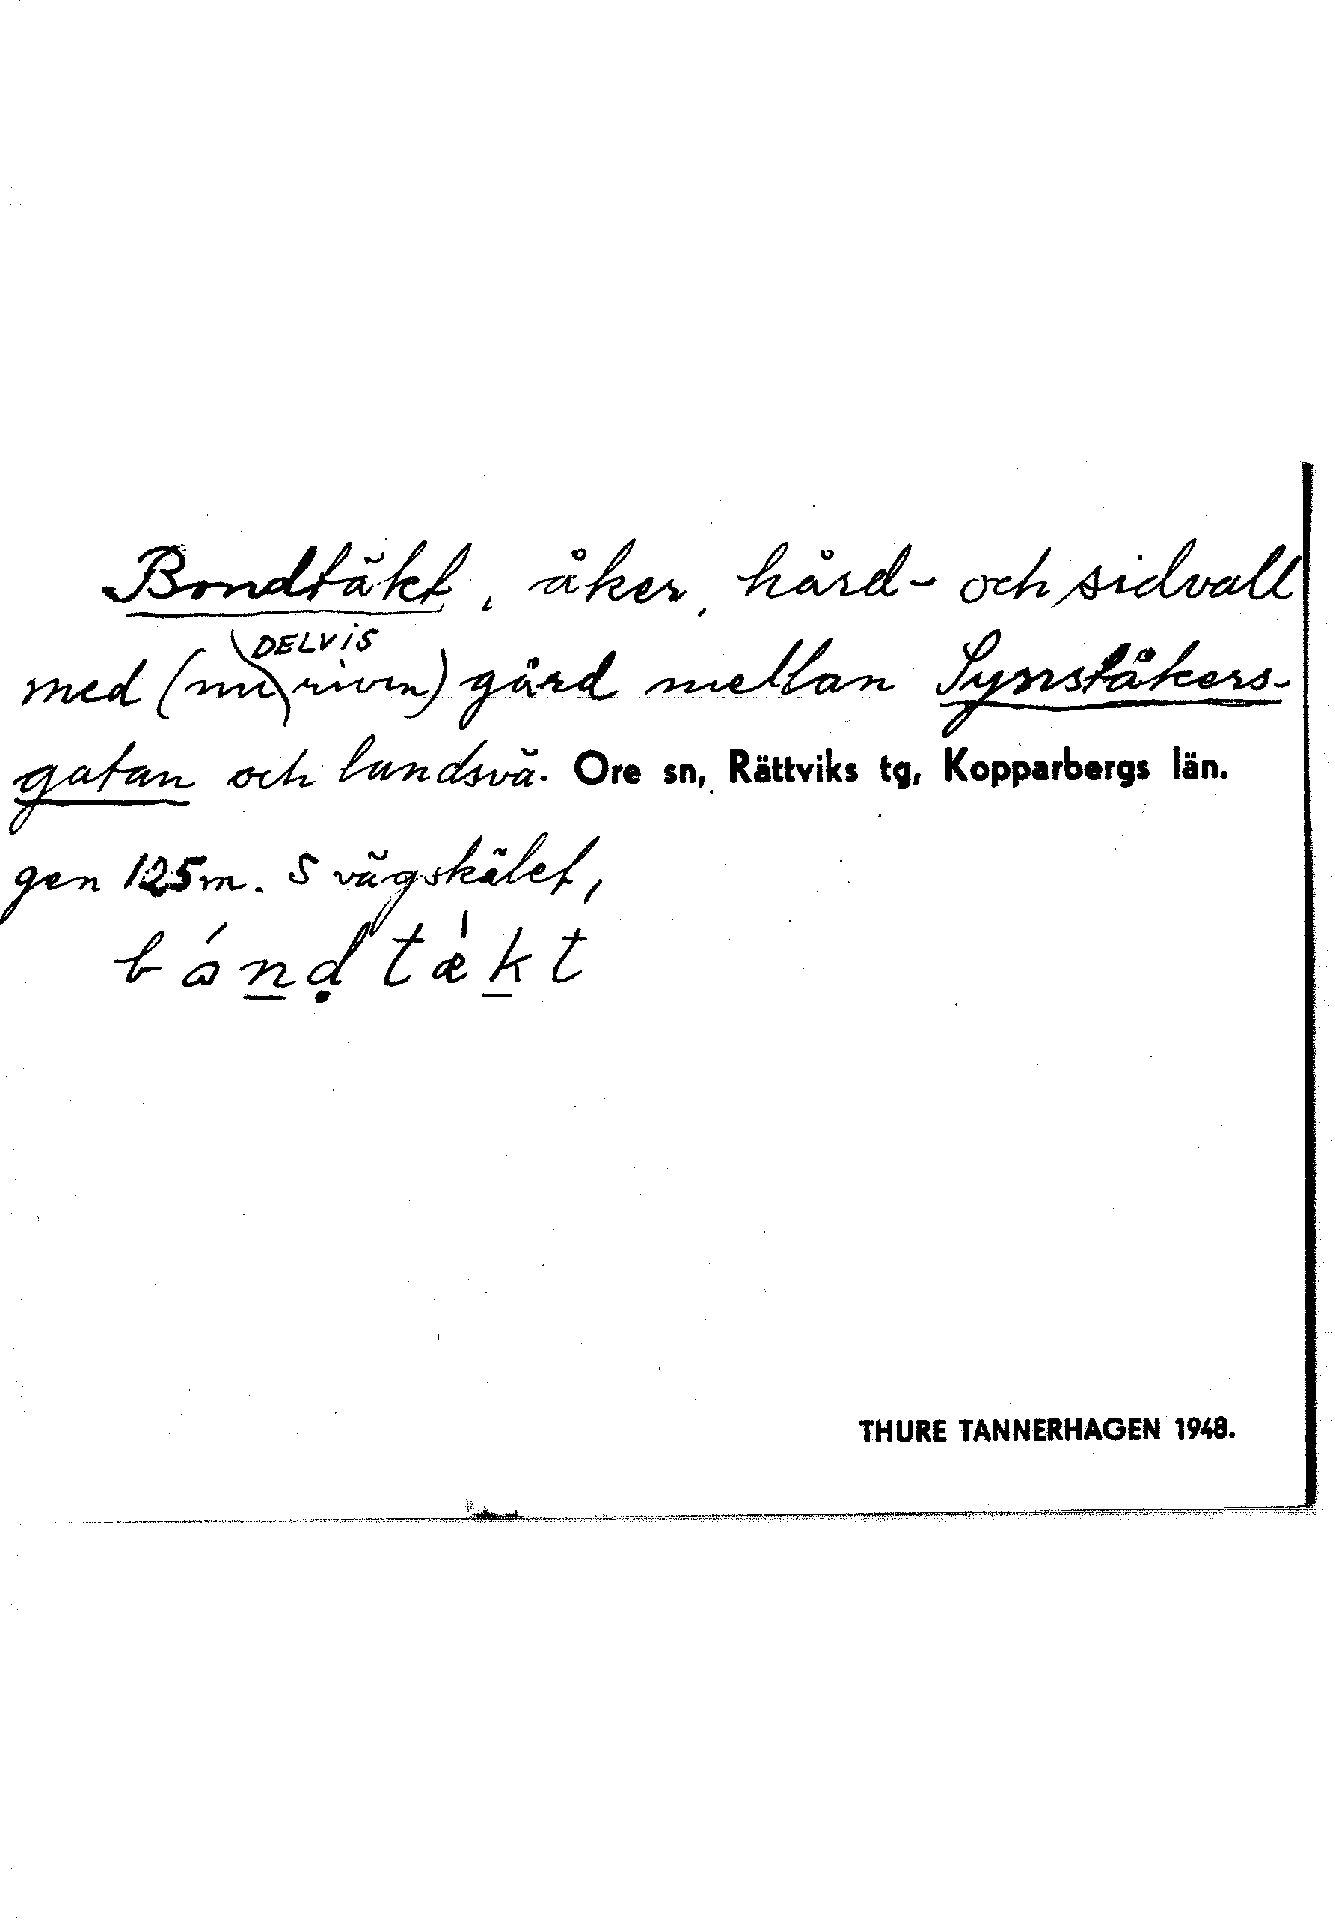 Bondtäkt, åker, hård- och sidvall
DELVIS
med (nu riven) gård mellan Synståkers-
gatan och landsvä- Ore sn, Rättviks tg, Kopparbergs län.
gen 125 m. S vägskälet,
bǻnḍtækt
THURE TANNERHAGEN 1948.